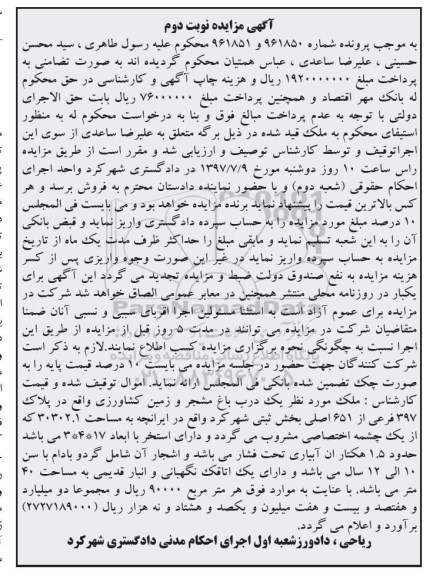 آگهی مزایده نوبت دوم
به موجب پرونده شماره ۹۶۱۸۵۰ و ۹۶۱۸۵۱ محکوم علیه رسول طاهری ، سید محسن
حسینی ، علیرضا ساعدی ، عباس همتیان محکوم گردیده اند به صورت تضامنی به
پرداخت مبلغ ۱۹۲۰۰۰۰۰۰۰ ریال و هزینه چاپ آگهی و کارشناسی در حق محکوم
له بانک مهر اقتصاد و همچنین پرداخت مبلغ ۷۶۰۰۰۰۰۰ ریال بابت حق الاجرای
دولتی با توجه به عدم پرداخت مبالغ فوق و بنا به درخواست محکوم له به منظور
استیفای محکوم به ملک قید شده در ذیل برگه متعلق به علیرضا ساعدی از سوی این
اجراتوقیف و توسط کارشناس توصیف و ارزیابی شد و مقرر است از طریق مزایده
راس ساعت ۱۰ روز دوشنبه مورخ ۱۳۹۷/۷/۹ در دادگستری شهرکرد واحد اجرای
احکام حقوقی (شعبه دوم) و با حضور نماینده دادستان محترم به فروش برسد و هر
کس بالاترین قیمت را پیشنهاد نماید برنده مزایده خواهد بود و می بایست فی المجلس
۱۰ درصد مبلغ مورد مزایده را به حساب سپرده دادگستری واریز نماید و قبض بانکی
آن را به این شعبه تسلیم نماید و مابقی مبلغ را حداکثر ظرف مدت یک ماه از تاریخ
مزایده به حساب سپرده واریز نماید در غیر این صورت وجوه واریزی پس از کسر
هزینه مزایده به نفع صندوق دولت ضبط و مزایده تجدید می گردد این آگهی برای
یکبار در روزنامه محلی منتشر همچنین در معابر عمومی الصاق خواهد شد شرکت در
مزایده برای عموم آزاد است به استثنا مسئولین اجرا اقربای سببی و نسبی آنان ضمنا
متقاضیان شرکت در مزایده می توانند در مدت ۵ روز قبل از مزایده از طریق این
اجرا نسبت به چگونگی نحوه برگزاری مزایده کسب اطلاع نمایند.لازم به ذکر است
شرکت کنندگان جهت حضور در جلسه مزایده می بایست ۱۰ درصد قیمت پایه را به
صورت چک تضمین شده بانکی فی المجلس ارائه نماید. اموال توقیف شده و قیمت
کارشناس : ملک مورد نظر یک درب باغ مشجر و زمین کشاورزی واقع در پلاک
۳۹۷ فرعی از ۶۵۱ اصلی بخش ثبتی شهرکرد واقع در ایرانچه به مساحت ۳۰۳۰۲.۱ که
از یک چشمه اختصاصی مشروب می گردد و دارای استخر با ابعاد ۱۷*۴*۳ می باشد
حدود ۱.۵ هکتار ان آبیاری تحت فشار می باشد و اشجار آن شامل گردو بادام با سن
۱۰ الی ۱۲ سال می باشد و دارای یک اتاقک نگهبانی و انبار قدیمی به مساحت ۴۰
متر می باشد. با عنایت به موارد فوق هر متر مربع ۹۰۰۰۰ ریال و مجموعا دو میلیارد
و هفتصد و بیست و هفت میلیون و یکصد و هشتاد و نه هزار ریال (۲۷۲۷۱۸۹۰۰۰)
برآورد و اعلام می گردد.
ریاحی ، دادورزشعبه اول اجرای احکام مدنی دادگستری شهرکرد